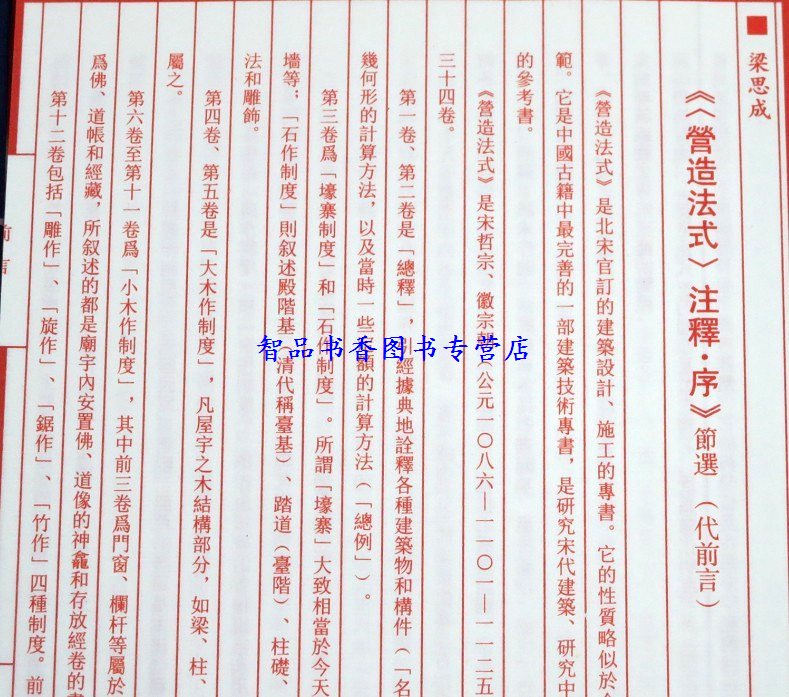 梁思成
《〈營造法式〉注釋·序》節選（代前言）
《營造法式》是北宋官訂的建築設計、施工的專書。它的性質略似於
範。它是中國古籍中最完善的一部建築技術專書，是研究宋代建築、研究中
的參考書。
《營造法式》是宋哲宗、徽宗朝（公元一〇八六—一一〇一—一一二五
三十四卷。
第一卷、第二卷是「總釋」，引經據典地詮釋各種建築物和構件（「名
幾何形的計算方法，以及當時一些定額的計算方法（「總例」）。
第三卷爲「壕寨制度」和「石作制度」。所謂「壕寨」大致相當於今天
墻等；「石作制度」則叙述殿階基（清代稱臺基）、踏道（臺階）、柱礎、
法和雕飾。
第四卷、第五卷是「大木作制度」，凡屋宇之木結構部分，如梁、柱、
屬之。
第六卷至第十一卷爲「小木作制度」，其中前三卷爲門窗、欄杆等屬於
爲佛、道帳和經藏，所叙述的都是廟宇內安置佛、道像的神龕和存放經卷的
第十二卷包括「雕作」、「旋作」、「鋸作」、「竹作」四種制度。前
前言
智品书香图书专营店